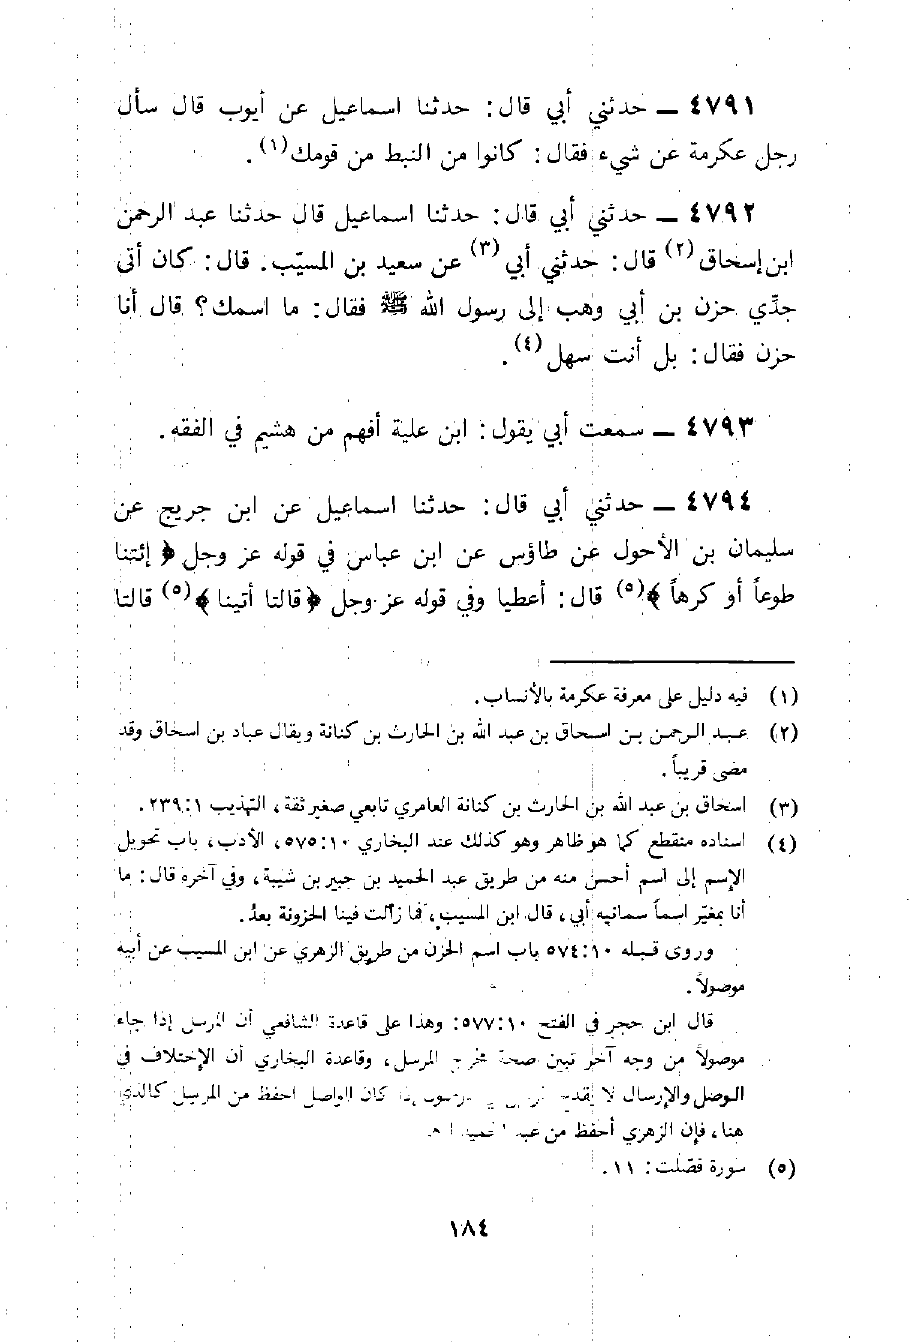 ٤٧٩١ ــ حدثني أبي قال: حدثنا اسماعيل عن أيوب قال سأل
رجل عكرمة عن شيء فقال: كانوا من النبط من قومك(١).
٤٧٩٢ ــ حدثني أبي قال: حدثنا اسماعيل قال حدثنا عبد الرحمن
ابن إسحاق(٢) قال: حدثني أبي(٣) عن سعيد بن المسيّب. قال: كان أتى
جدّي حزن بن أبي وهب إلى رسول الله ﷺ فقال: ما اسمك؟ قال أنا
حزن فقال: بل أنت سهل(٤).
٤٧٩٣ ــ سمعت أبي يقول: ابن علية أفهم من هشيم في الفقه.
٤٧٩٤ ــ حدثني أبي قال: حدثنا اسماعيل عن ابن جريج عن
سليمان بن الأحول عن طاؤس عن ابن عباس في قوله عز وجل ﴿ إئتنا
طوعاً أو كرهاً ﴾(٥) قال: أعطيا وفي قوله عز وجل ﴿ قالتا أتينا ﴾(٥) قالتا
(١) فيه دليل على معرفة عكرمة بالأنساب.
(٢) عبد الرحمن بن اسحاق بن عبد الله بن الحارث بن كنانة ويقال عباد بن اسحاق وقد
مضى قريباً.
(٣) اسحاق بن عبد الله بن الحارث بن كنانة العامري تابعي صغير ثقة، التهذيب ٢٣٩:١.
(٤) اسناده منقطع كما هو ظاهر وهو كذلك عند البخاري ٥٧٥:١٠، الأدب، باب تحويل
الإسم إلى اسم أحسن منه من طريق عبد الحميد بن جبير بن شيبة، وفي آخره قال: ما
أنا بمغيّر اسماً سمانيه أبي، قال ابن المسيب، فما زالت فينا الحزونة بعدُ.
وروى قبله ٥٧٤:١٠ باب اسم الحزن من طريق الزهري عن ابن المسيب عن أبيه
موصولاً.
قال ابن حجر في الفتح ٥٧٧:١٠: وهذا على قاعدة الشافعي أن المرسل إذا جاء
موصولاً من وجه آخر تبين صحة مخرج المرسل، وقاعدة البخاري أن الإختلاف في
الوصل والإرسال لا يقدح كان الواصل احفظ من المرسل كالذي
هنا، فإن الزهري أحفظ من عبد الحميد
(٥) سورة فصّلت: ١١.
١٨٤